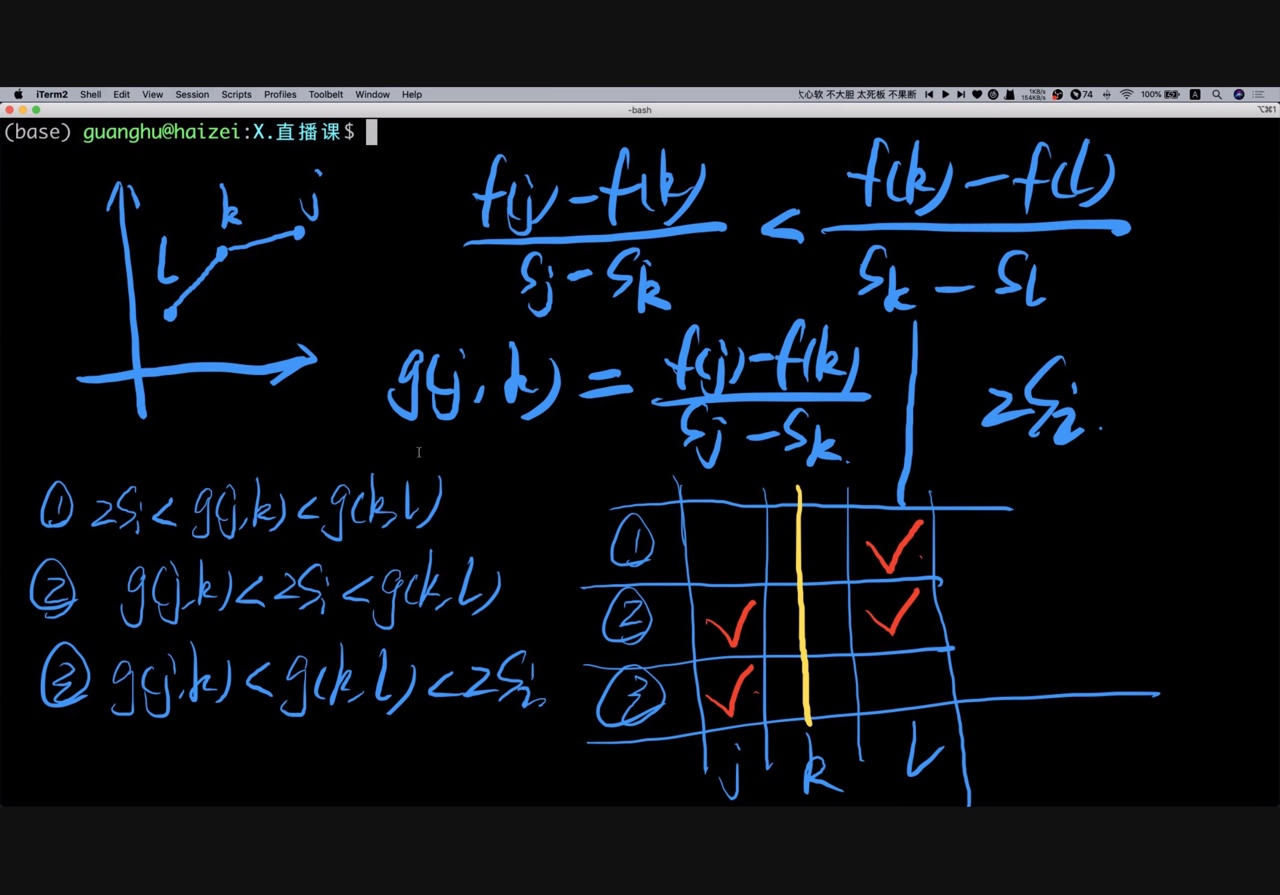 iTerm2 Shell Edit View Session Scripts Profiles Toolbelt Window Help
心软 不大胆 太死板 不果断 1KB/s 154KB/s 74 100% A
-bash ⌥⌘1
(base) guanghu@haizei:X.直播课$
l k j
f(j)-f(k) / Sj-Sk < f(k)-f(l) / Sk-Sl
g(j,k) = f(j)-f(k) / Sj-Sk.
2Si.
① 2Si < g(j,k) < g(k,l)
② g(j,k) < 2Si < g(k,l)
③ g(j,k) < g(k,l) < 2Si.
① ✓
② ✓ ✓
③ ✓
j k l